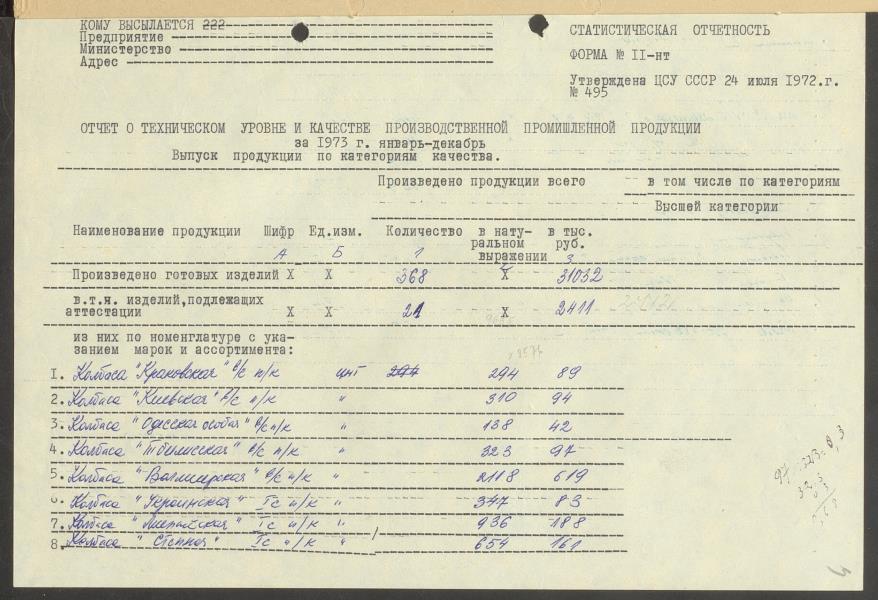 КОМУ ВЫСЫЛАЕТСЯ 222
Предприятие
Министерство
Адрес
СТАТИСТИЧЕСКАЯ ОТЧЕТНОСТЬ
ФОРМА № II-нт
Утверждена ЦСУ СССР 24 июля 1972.г.
№ 495
ОТЧЕТ О ТЕХНИЧЕСКОМ УРОВНЕ И КАЧЕСТВЕ ПРОИЗВОДСТВЕННОЙ ПРОМИШЛЕННОЙ ПРОДУКЦИИ
за 1973 г. январь-декабрь
Выпуск продукции по категориям качества.
Произведено продукции всего в том числе по категориям
Высшей категории
Наименование продукции Шифр Ед.изм. Количество в нату- в тыс.
ральном руб.
выражении
А Б 1 3
Произведено готовых изделий Х Х 368 Х 31032
в.т.я. изделий,подлежащих
аттестации Х Х 21 Х 2411
из них по номенглатуре с ука-
занием марок и ассортимента:
1. Колбаса "Краковская" в/с п/к цнт 294 294 89
2. Колбаса "Киевская" в/с п/к " 310 94
3. Колбаса "Одесская особая" в/с п/к " 138 42
4. Колбаса "Тбилисская" в/с п/к " 323 97
5. Колбаса "Валмиерская" в/с п/к " 2118 619
6. Колбаса "Украинская" Iс п/к " 347 83
7. Колбаса Iс п/к " 936 188
8. Колбаса "Степная" Iс п/к " 654 161
97 : 323 = 0,3